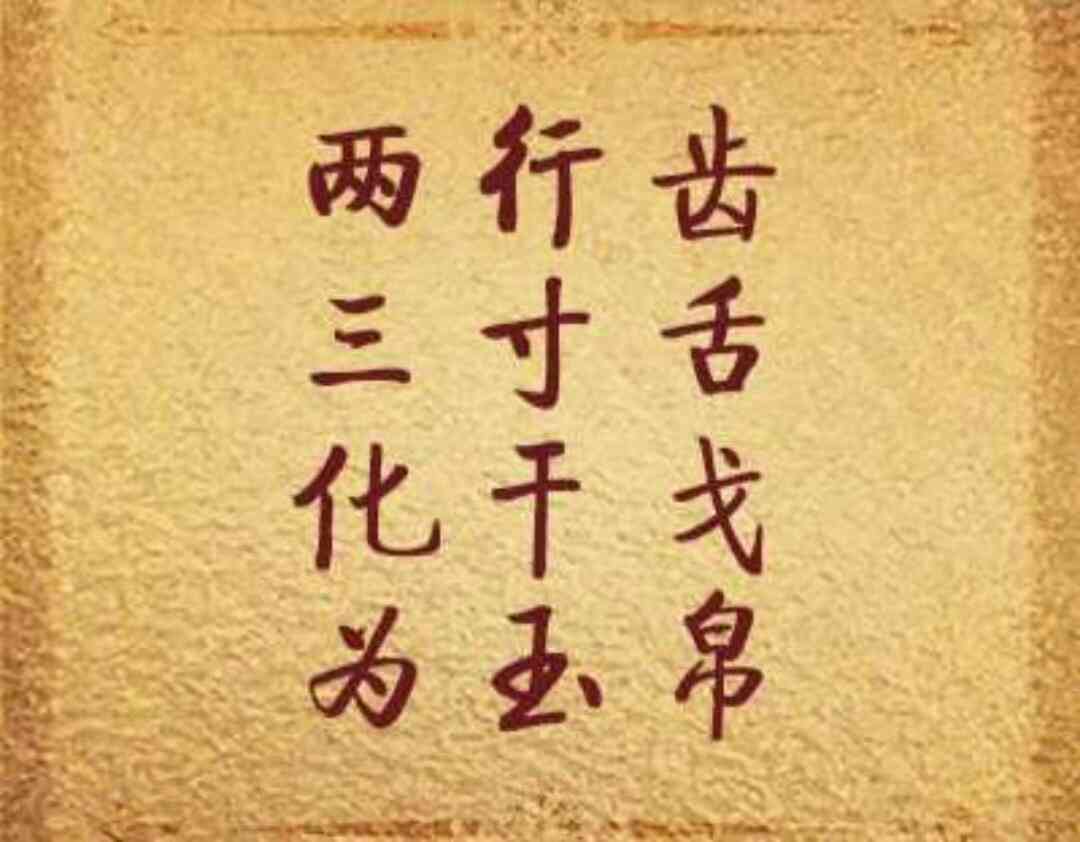 两行齿
三寸舌
化干戈
为玉帛